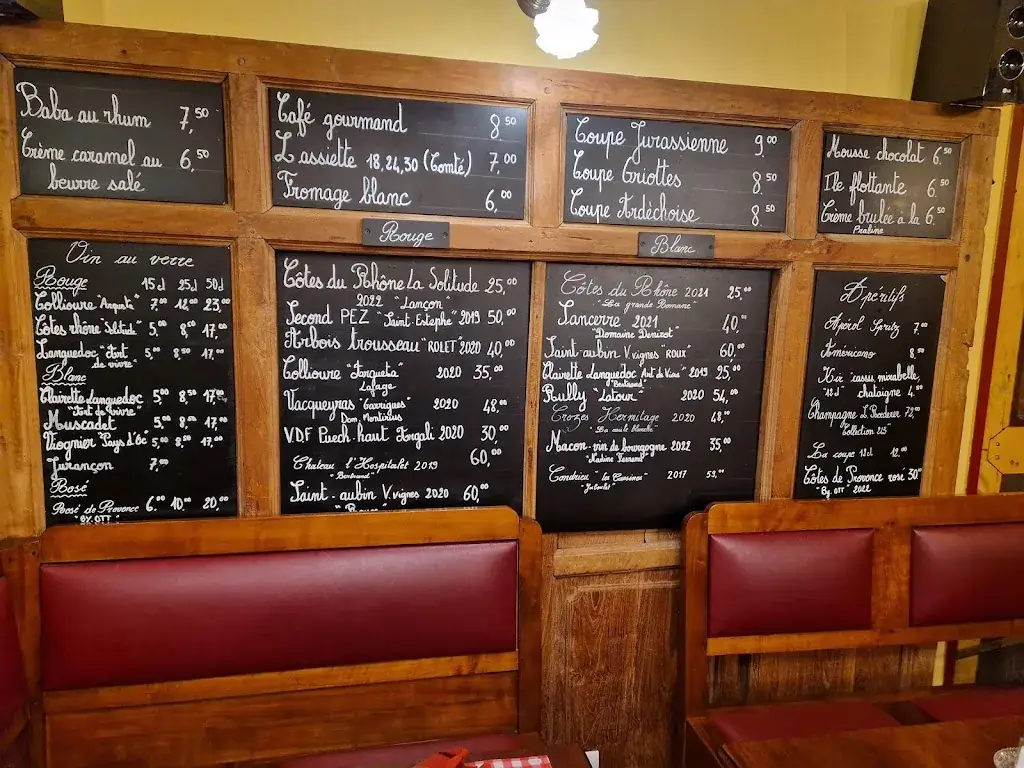 Baba au rhum 7,50
Crème caramel au 6,50
beurre salé
Café gourmand 8,50
L'assiette 18,24,30 (Comté) 7,00
Fromage blanc 6,00
Coupe Jurassienne 9,00
Coupe Griottes 8,50
Coupe Ardèchoise 8,50
Mousse chocolat 6,50
Ile flottante 6,50
Crème brulée à la 6,50
Praline
Rouge
Blanc
Vin au verre
Rouge 15cl 25cl 50cl
Collioure 7,00 12,00 23,00
Côtes rhône "Solitude" 5,00 8,50 17,00
Languedoc "Art 5,00 8,50 17,00
de vivre"
Blanc
Clairette Languedoc 5,00 8,50 17,00
"Art de vivre"
Muscadet 5,00 8,50 17,00
Viognier "Pays d'Oc" 5,00 8,50 17,00
Jurançon 7,00
Rosé
Rosé de Provence 6,00 10,00 20,00
"BY.OTT"
Côtes du Rhône La Solitude 25,00
2022 "Lançon"
Second PEZ "Saint-Estephe" 2019 50,00
Arbois trousseau "ROLET" 2020 40,00
Collioure "Argueta" 2020 35,00
Lafage
Vacqueyras "Garrigues" 2020 48,00
Dom, Montirius
VDF Puech haut Argali 2020 30,00
Chateau l'Hospitalet 2019 60,00
"Bertrand"
Saint-aubin V.vignes 2020 60,00
Côtes du Rhône 2021 25,00
"La grande Romane"
Sancerre 2021 40,00
"Domaine Denizot"
Saint-aubin V.vignes "ROUX" 60,00
Clairette Languedoc "Art de Vivre" 2019 25,00
"Bertrand"
Rully "Latour" 2020 54,00
Crozes Hermitage 2020 48,00
Macon-vin de bourgogne 2022 35,00
Condrieu 2017 53,00
Apéritifs
Apérol Spritz 7,00
Américano 8,50
Kir cassis, mirabelle,
12cl chataigne 4,00
Champagne L. Roederer 72,00
Collection 245
La coupe 12cl 12,00
Côtes de Provence rosé 30,00
"By.OTT" 2022